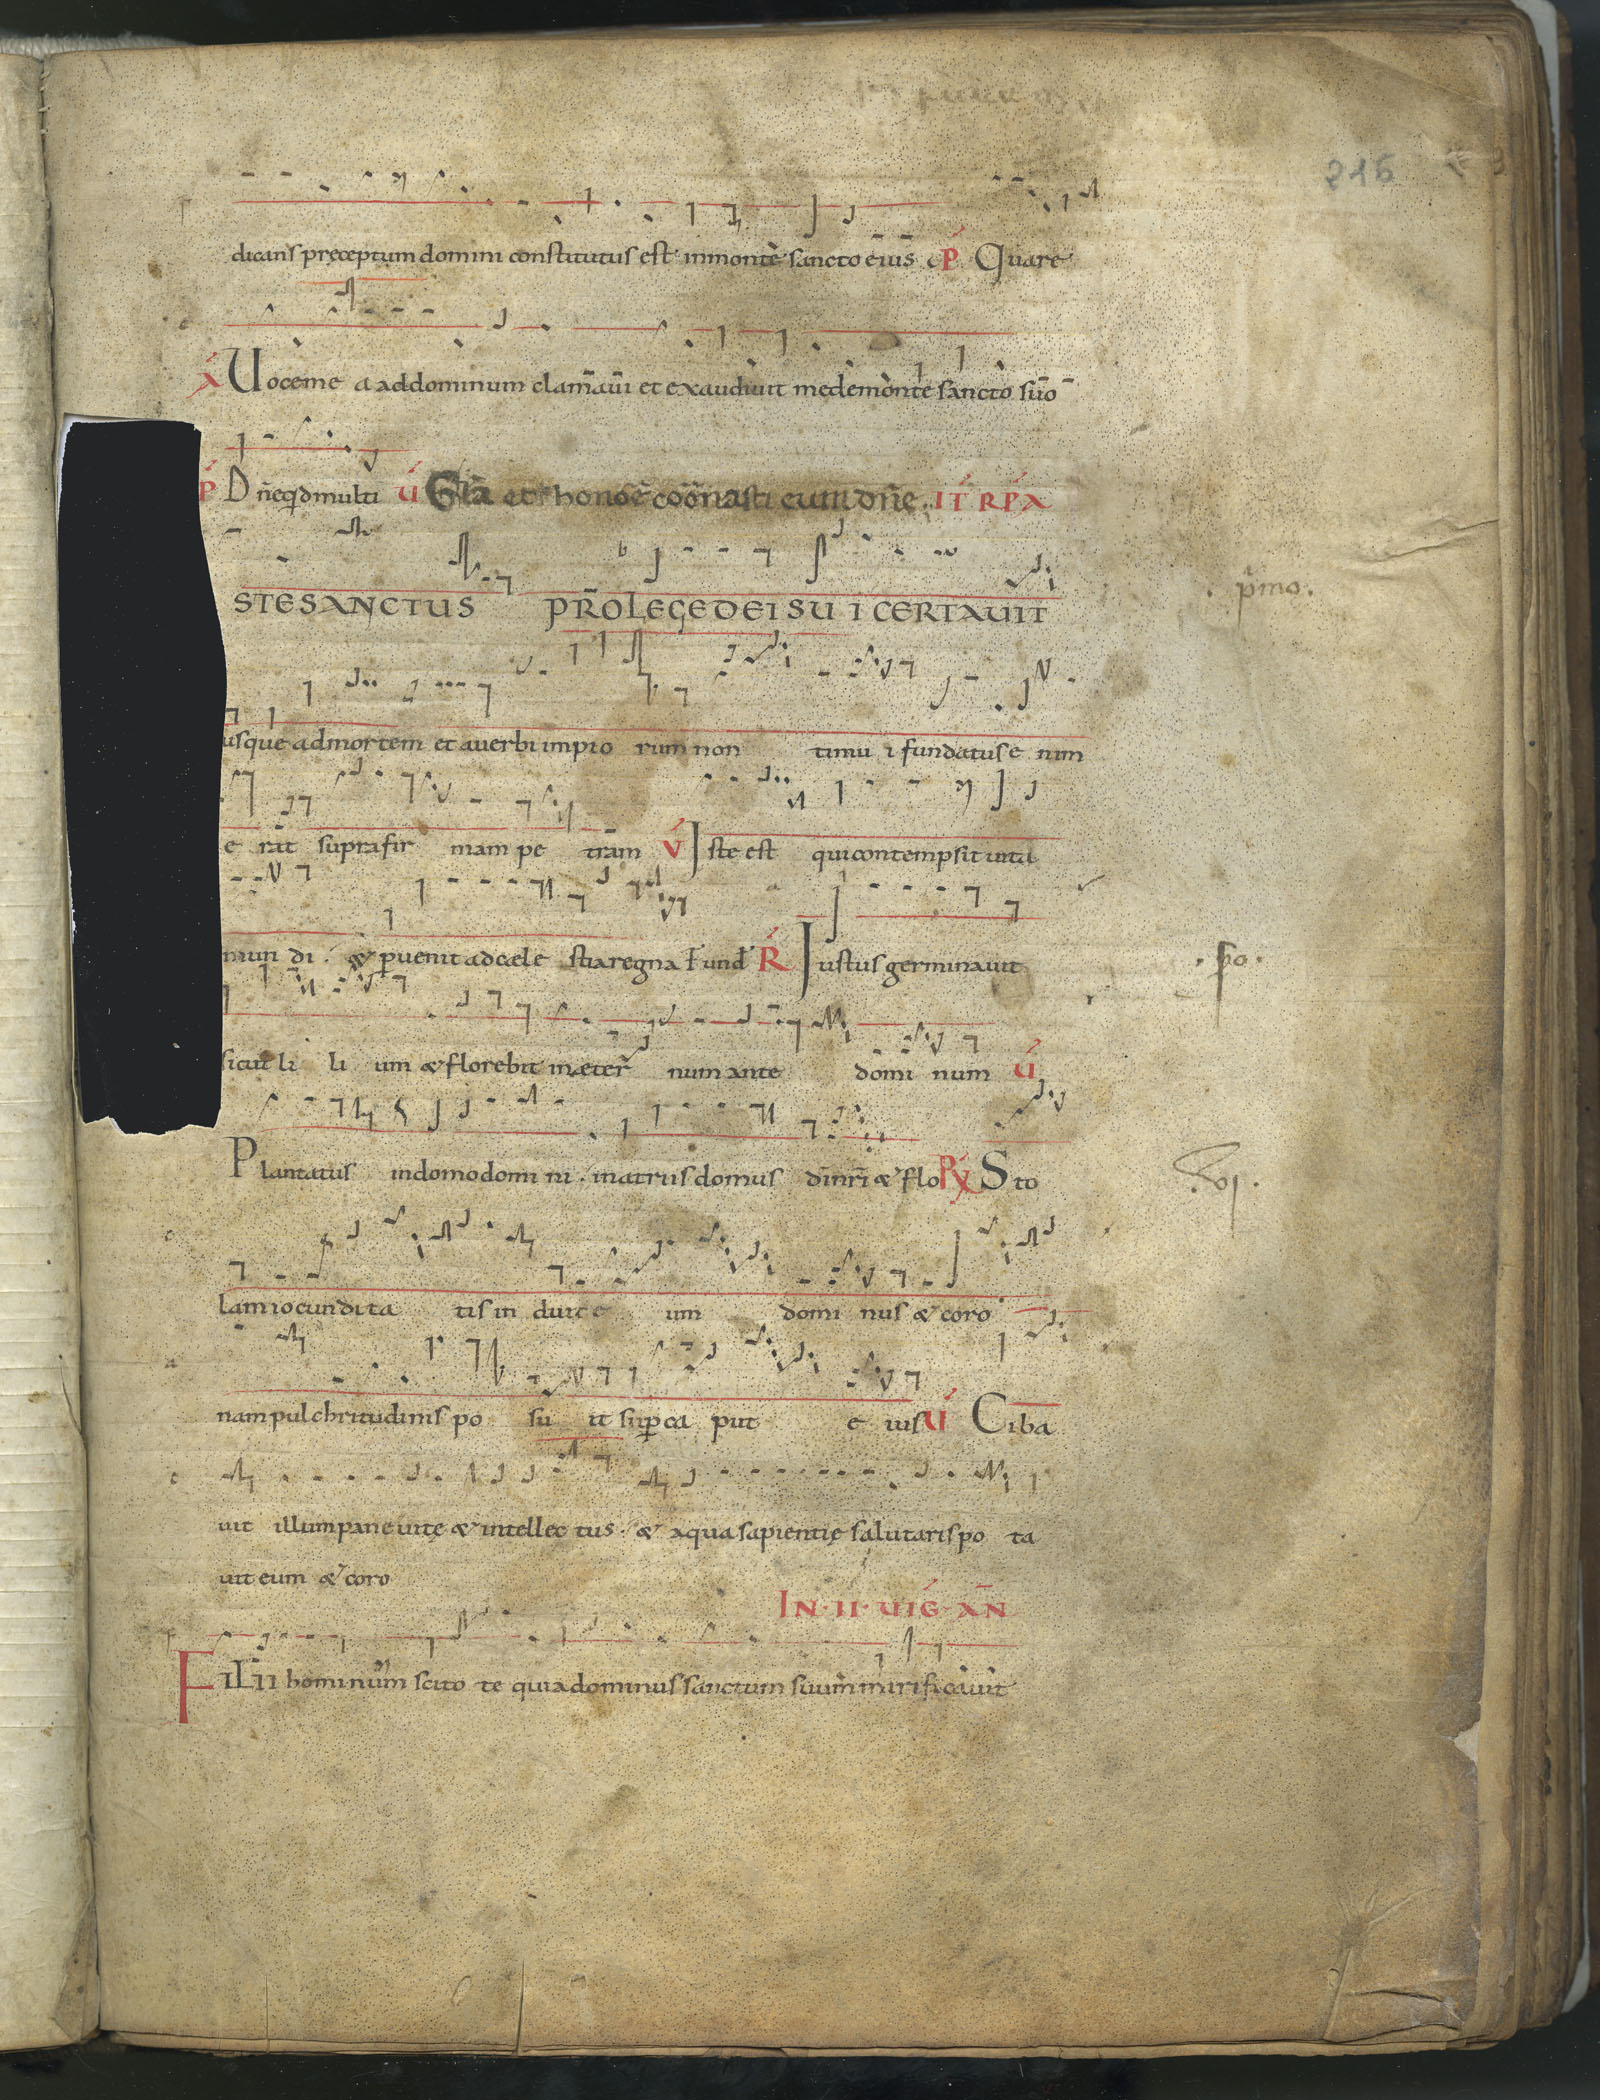 215
dicans pręceptum domini constitutus est in monte sancto eius P̄ Quare
A Uoce me a ad dominum clamaui et exaudiuit me de monte sancto suo
P Dn̄e qd multi U Gl̄a et honoē coōnasti eum dn̄e IT RPA
STE SANCTUS PRO LEGE DEI SU I CERTAUIT
.pͥmo.
usque ad mortem et a uerbi impio rum non timu i fundatus e nim
e rat supra fir mam pe tram V Iste est qui contempsit uita
mun di. & puenit ad cęle stia regna Fund R Iustus germinauit
.so.
sicut li li um & florebit in æter num ante domi num U
Plantatus in domo domi ni. in atriis domus dī nr̄i & flo RX Sto
lam iocundita tis in duit e um domi nus & coro
nam pulchritudinis po su it sup ca put e ius U Ciba
uit illum pane uitę & intellec tus. & aqua sapientię salutaris po ta
uit eum & coro
IN·II·UIG·AN̄
FiLii hominum scito te quia dominus sanctum suum mirificauit